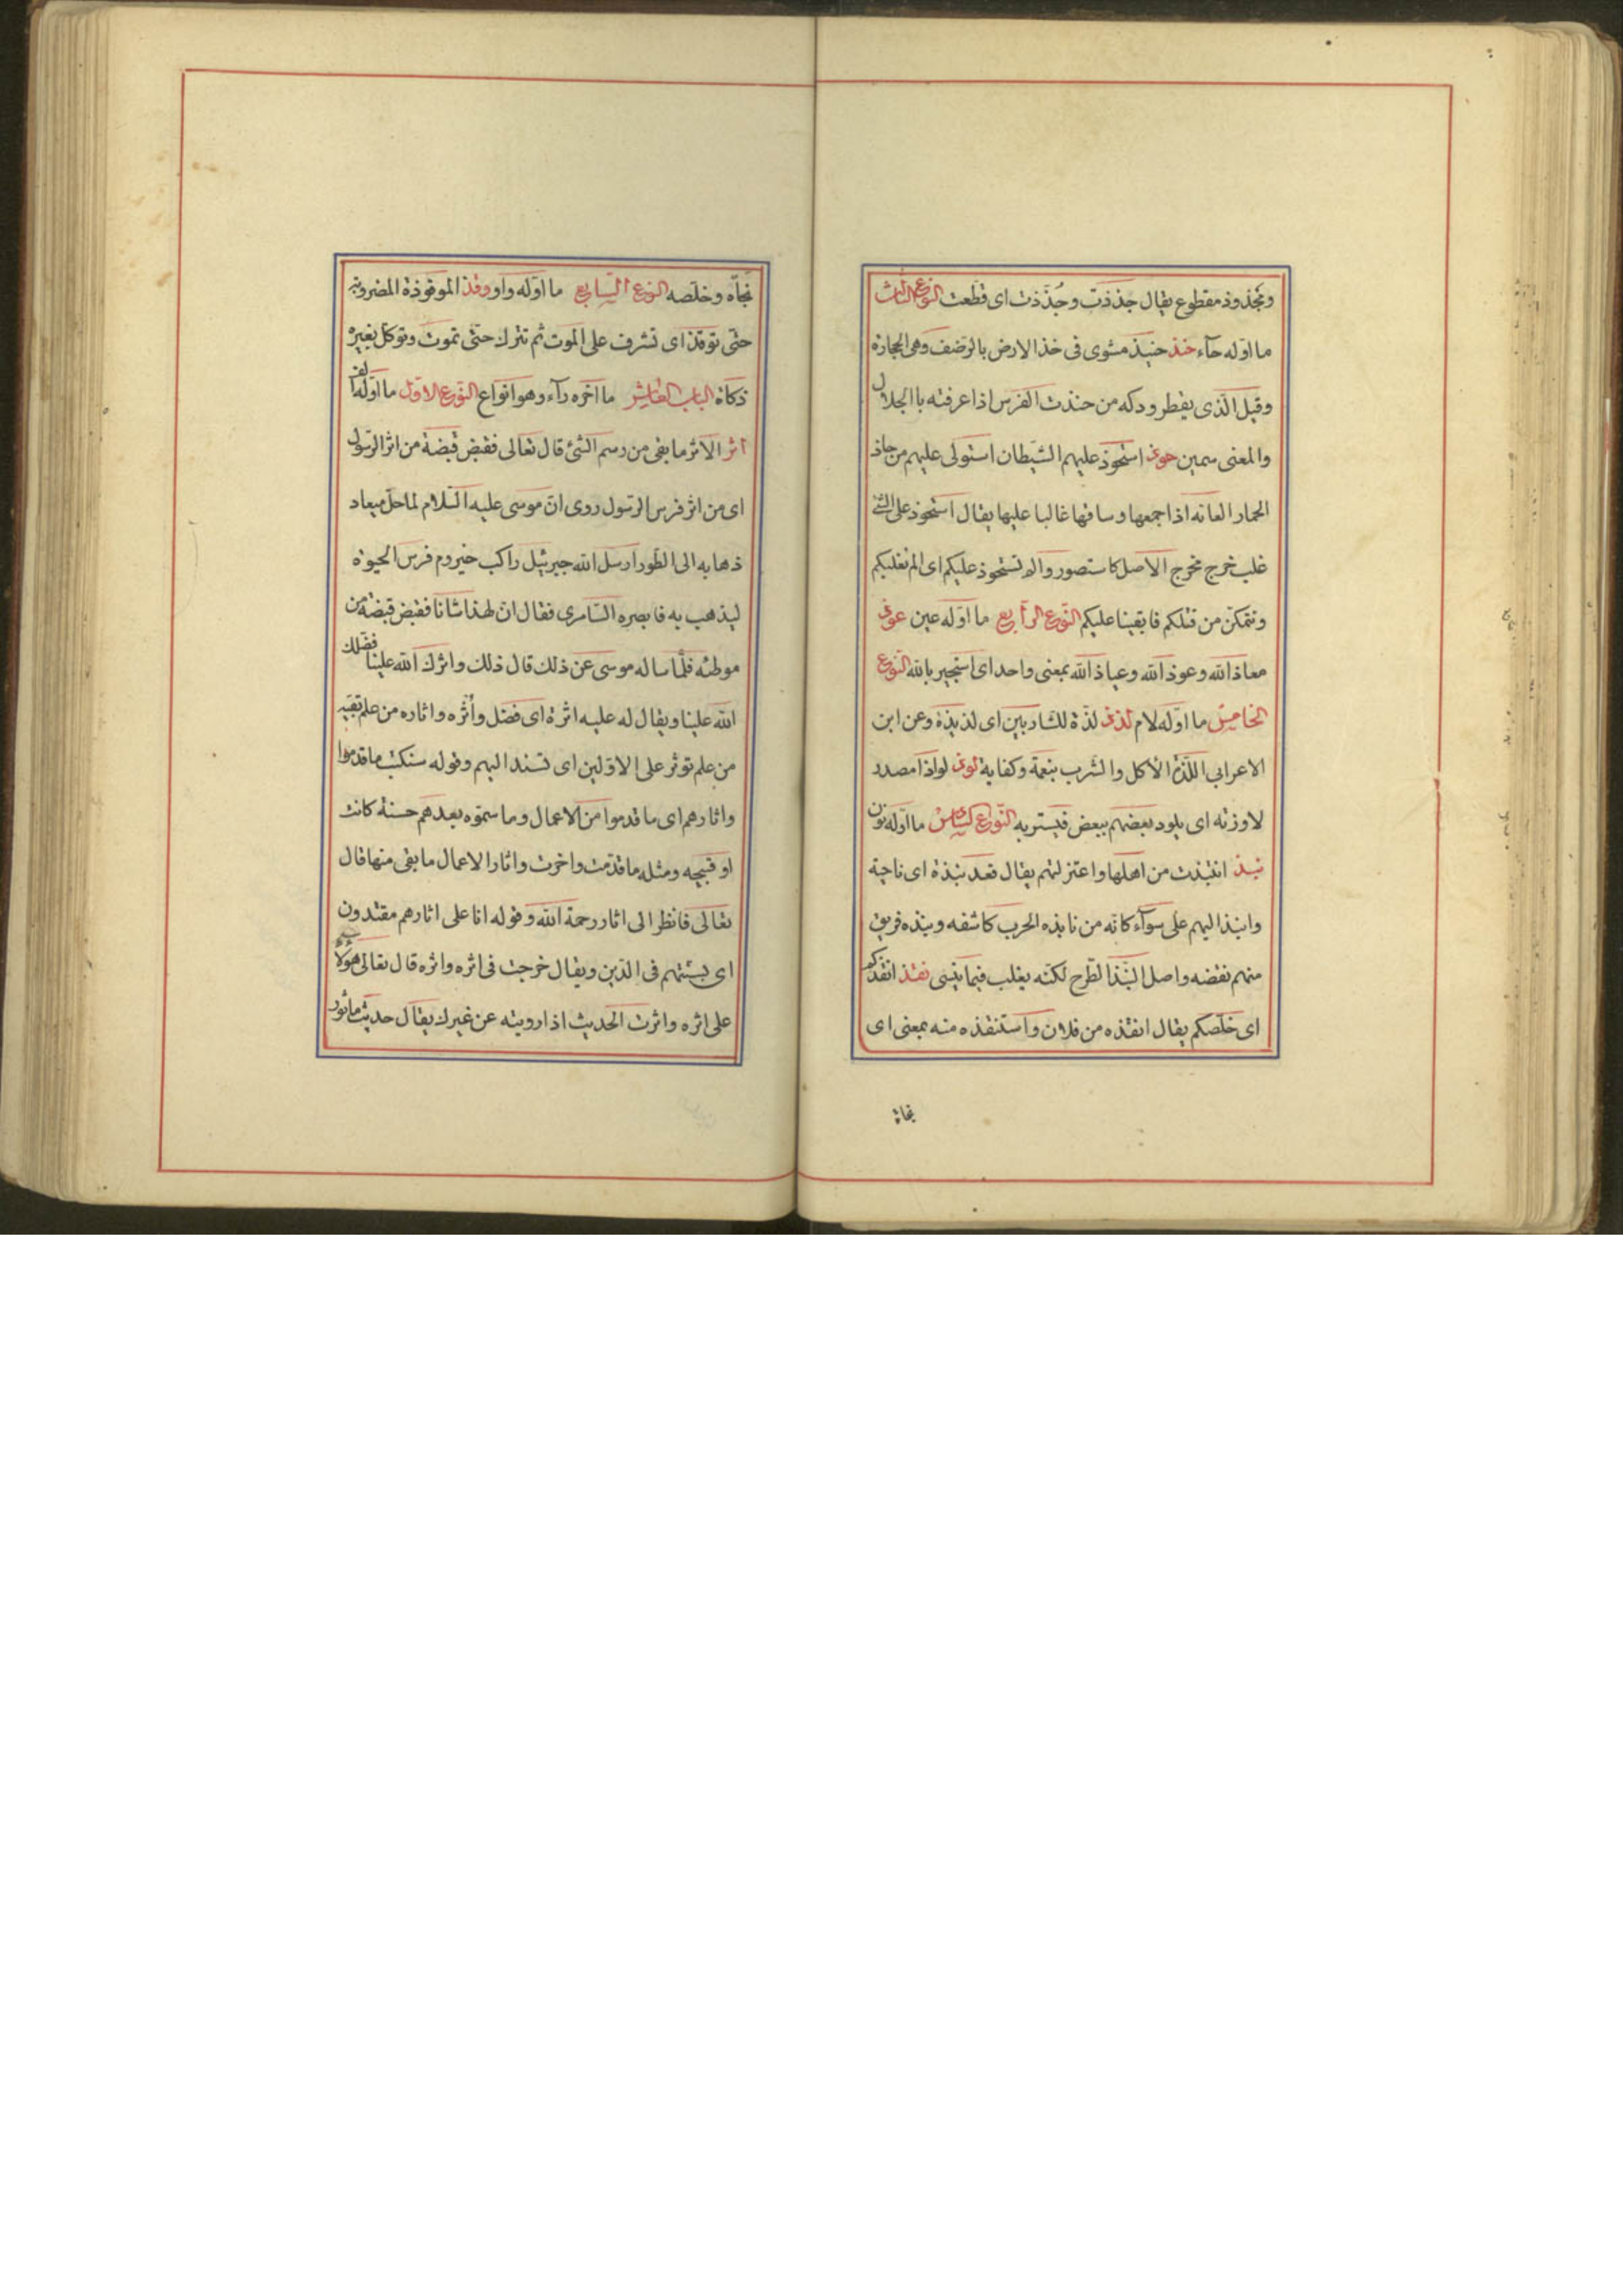 ومجذوذ مقطوع يقال جذذت وجُذّذت اى قطعت النوع الثالث
ما اوّله حآء حنذ حنيذ مشوى فى خذ الارض بالرّضف وهى الحجارة
وقيل الّذى يقطر ودكه من حنذت الفرس اذا عرفته باالجلال
والمعنى سمين حوذ استحوذ عليهم الشّيطان استولى عليهم من حاذ
الحمار العانه اذا جمعها وساقها غالبا عليها يقال استحوذ على الشئ
غلب خرج مخرج الاصل كاستصور والم نستحوذ عليكم اى الم نغلبكم
ونتمكّن من قتلكم فابقينا عليكم النّوع الرّابع ما اوّله عين عوذ
معاذ الله وعوذ الله وعياذ الله بمعنى واحد اى استجير بالله النّوع
الخامس ما اوّله لام لذذ لذّة للشّاربين اى لذيذة وعن ابن
الاعرابى اللّذة الاكل والشرب بنعمة وكفاية لوذ لواذا مصدر
لاوزته اى يلود بعضهم ببعض فيستر به النّوع السّادس ما اوّله نون
نبذ انتبذت من اهلها واعتزلتهم يقال قعد نبذة اى ناحية
وانبذ اليهم على سوآء كانّه من نابذه الحرب كاشفه ونبذه فريق
منهم نقضه واصل النّبذ الطّرح لكنّه يغلب فيما ينسى نقذ انقذكم
اى خلّصكم يقال انقذه من فلان واستنقذه منه بمعنى اى
نجاه
نجاّه وخلّصه النوع السّابع ما اوّله واو وقذ الموقوذة المضروبة
حتّى توقذ اى تشرف على الموت ثم تترك حتّى تموت وتوكل بغير
ذكاة الباب العاشر ما اخره رآء وهو انواع النّوع الاوّل ما اوّله الف
اثر الاثر ما بقى من رسم الشئ قال تعالى فقبض قبضة من اثر الرّسول
اى من اثر فرس الرّسول روى انّ موسى عليه السّلام لما حلّ ميعاد
ذهابه الى الطّور ارسل الله جبرئيل راكب حيزوم فرس الحيوة
ليذهب به فابصره السّامرى فقال انّ لهذا شانا فقبض قبضة من
موطئه فلمّا ساله موسى عن ذلك قال ذلك واثرك الله علينا فضلك
الله علينا ويقال له عليه اثرة اى فضل وأثره واثاره من علم بقيّة
من علم توثر على الاوّلين اى تسند اليهم وقوله سنكتب ما قدموا
واثارهم اى ما قدموا من الاعمال وما سنّوه بعدهم حسنة كانت
او قبيحه ومثله ما قدّمت واخرت واثار الاعمال ما بقى منها قال
تعالى فانظر الى اثار رحمة الله وقوله انا على اثارهم مقتدون
اى بسنّتهم فى الدّين ويقال خرجت فى اثره واثره قال تعالى هؤلآء
على اثره واثرت الحديث اذا رويته عن غيرك يقال حديث ماثور